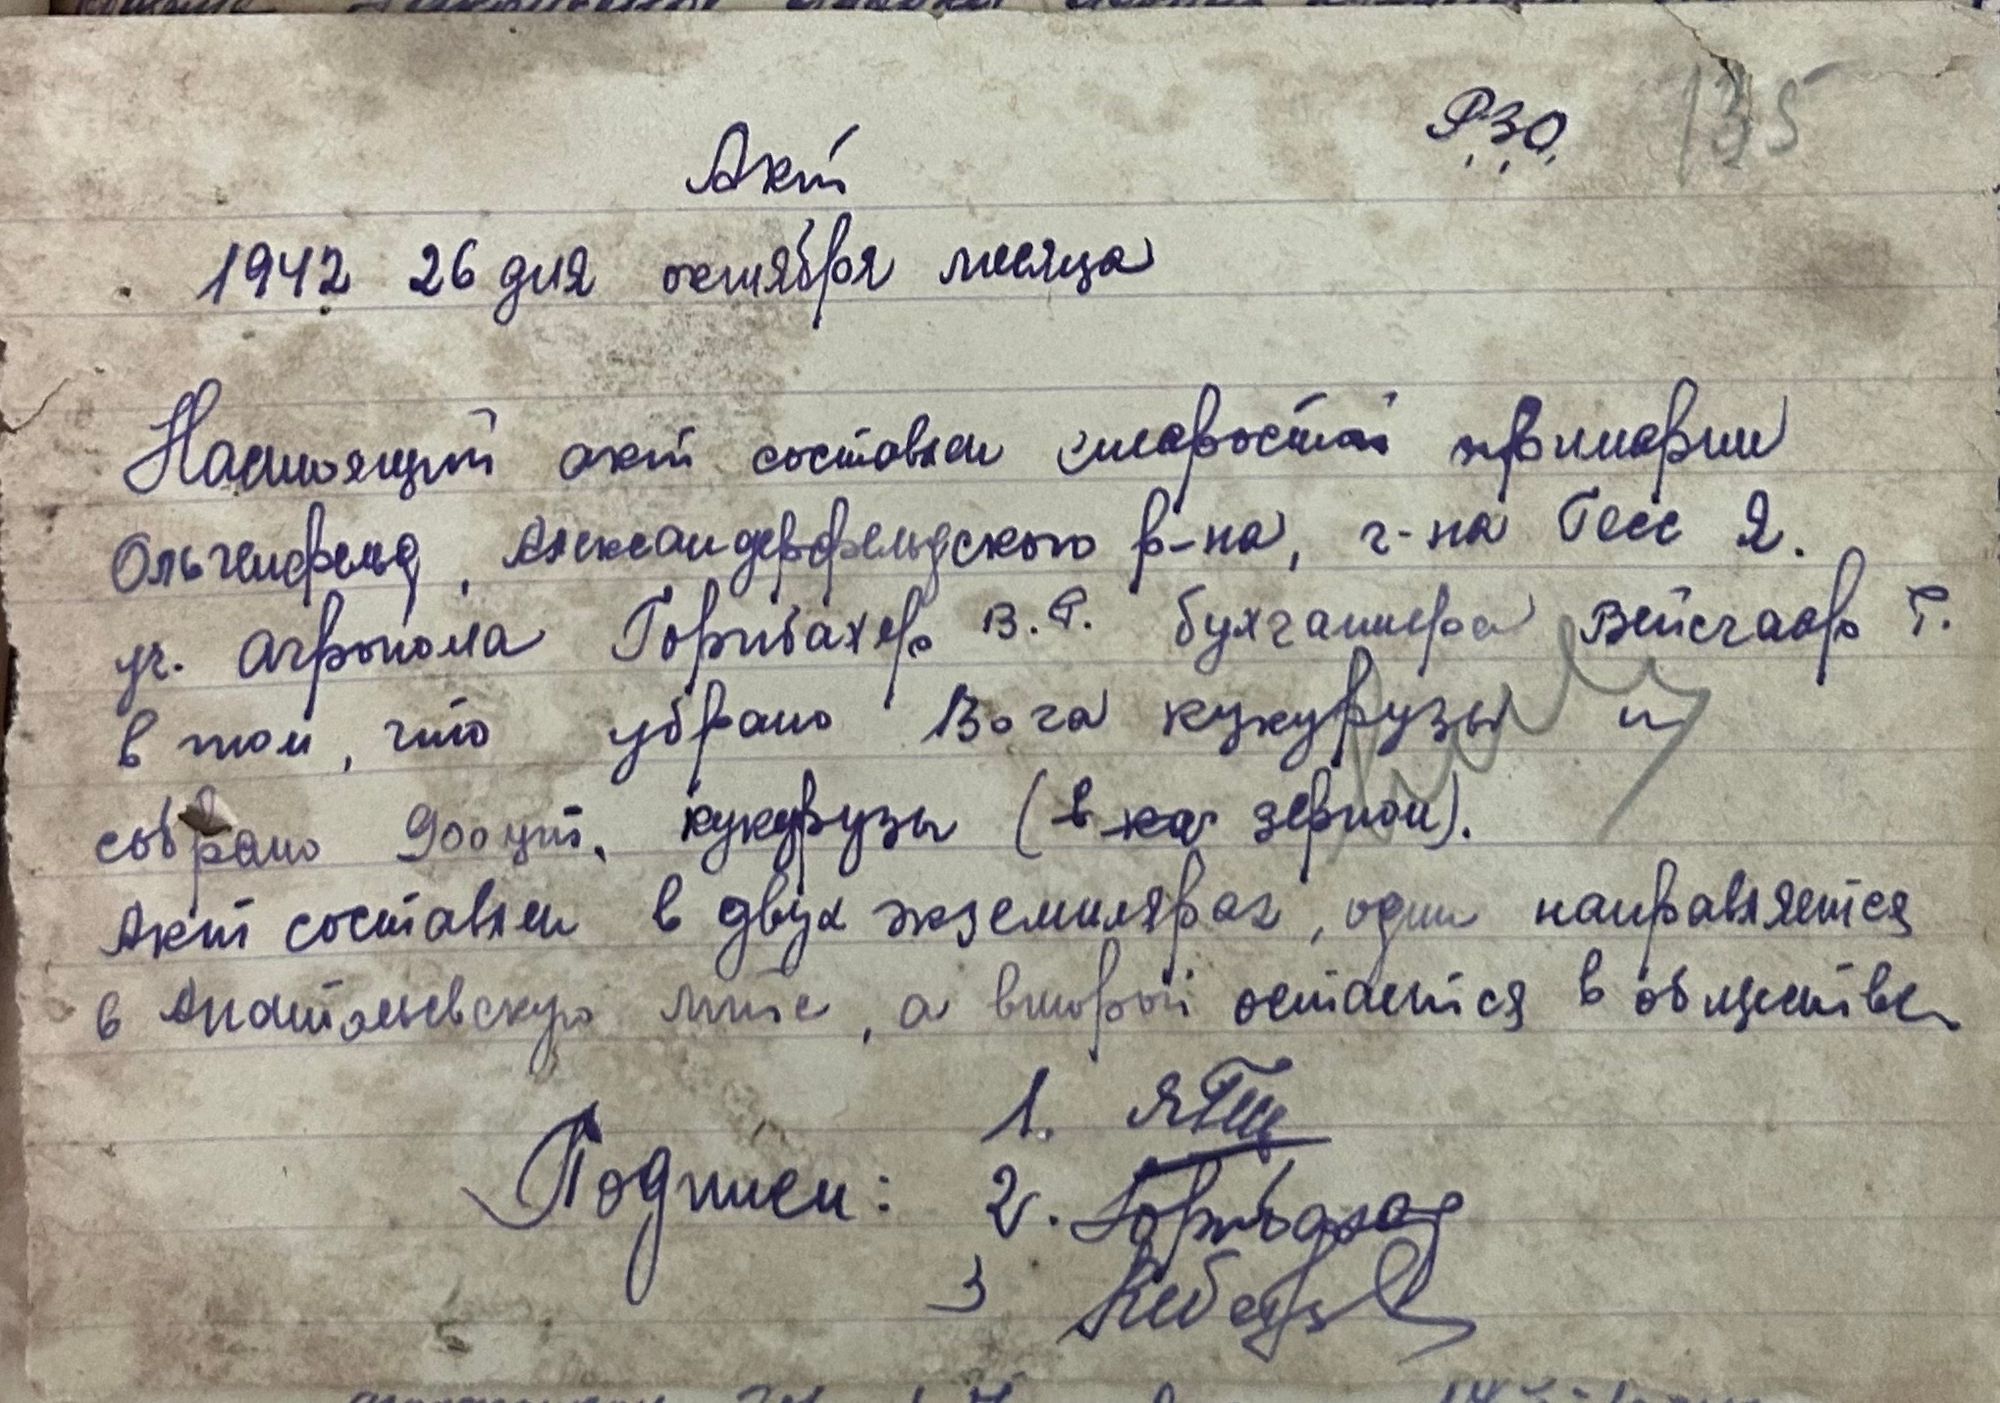 Р.З.О. 135
Акт
1942 26 дня октября месяца
Настоящий акт составлен старостой примарии
Ольгенфельд, Александерфельдского р-на, г-на Гесс Я.
уч. агронома Горнбахер В.Р. бухгалтера Вейсгаар Г.
в том, что убрано 130 га кукурузы и
собрано 900 цнт. кукурузы (в ка зерном).
Акт составлен в двух экземплярах, один направляется
в Анатольевскую мтс, а второй остается в обществе
1. ЯГ
Подписи: 2.
3